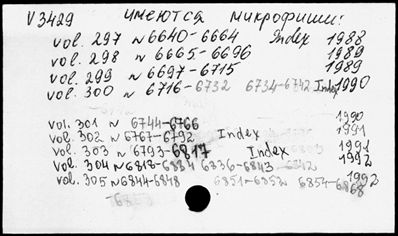 V3429 имеются микрофиши:
vol. 297 N 6640-6664 Index 1988
vol. 298 N 6665-6696 1989
vol. 299 N 6697-6715 1989
vol. 300 N 6716-6732 6734-6742 Index 1990
vol. 301 N 6744-6766 1990
vol. 302 N 6767-6792 Index 1991
vol. 303 N 6793-6817 Index 1991
vol. 304 N 6818-6834 6836-6843 1992
vol. 305 N 6844-6848 6851-6852 6854-6868 1992